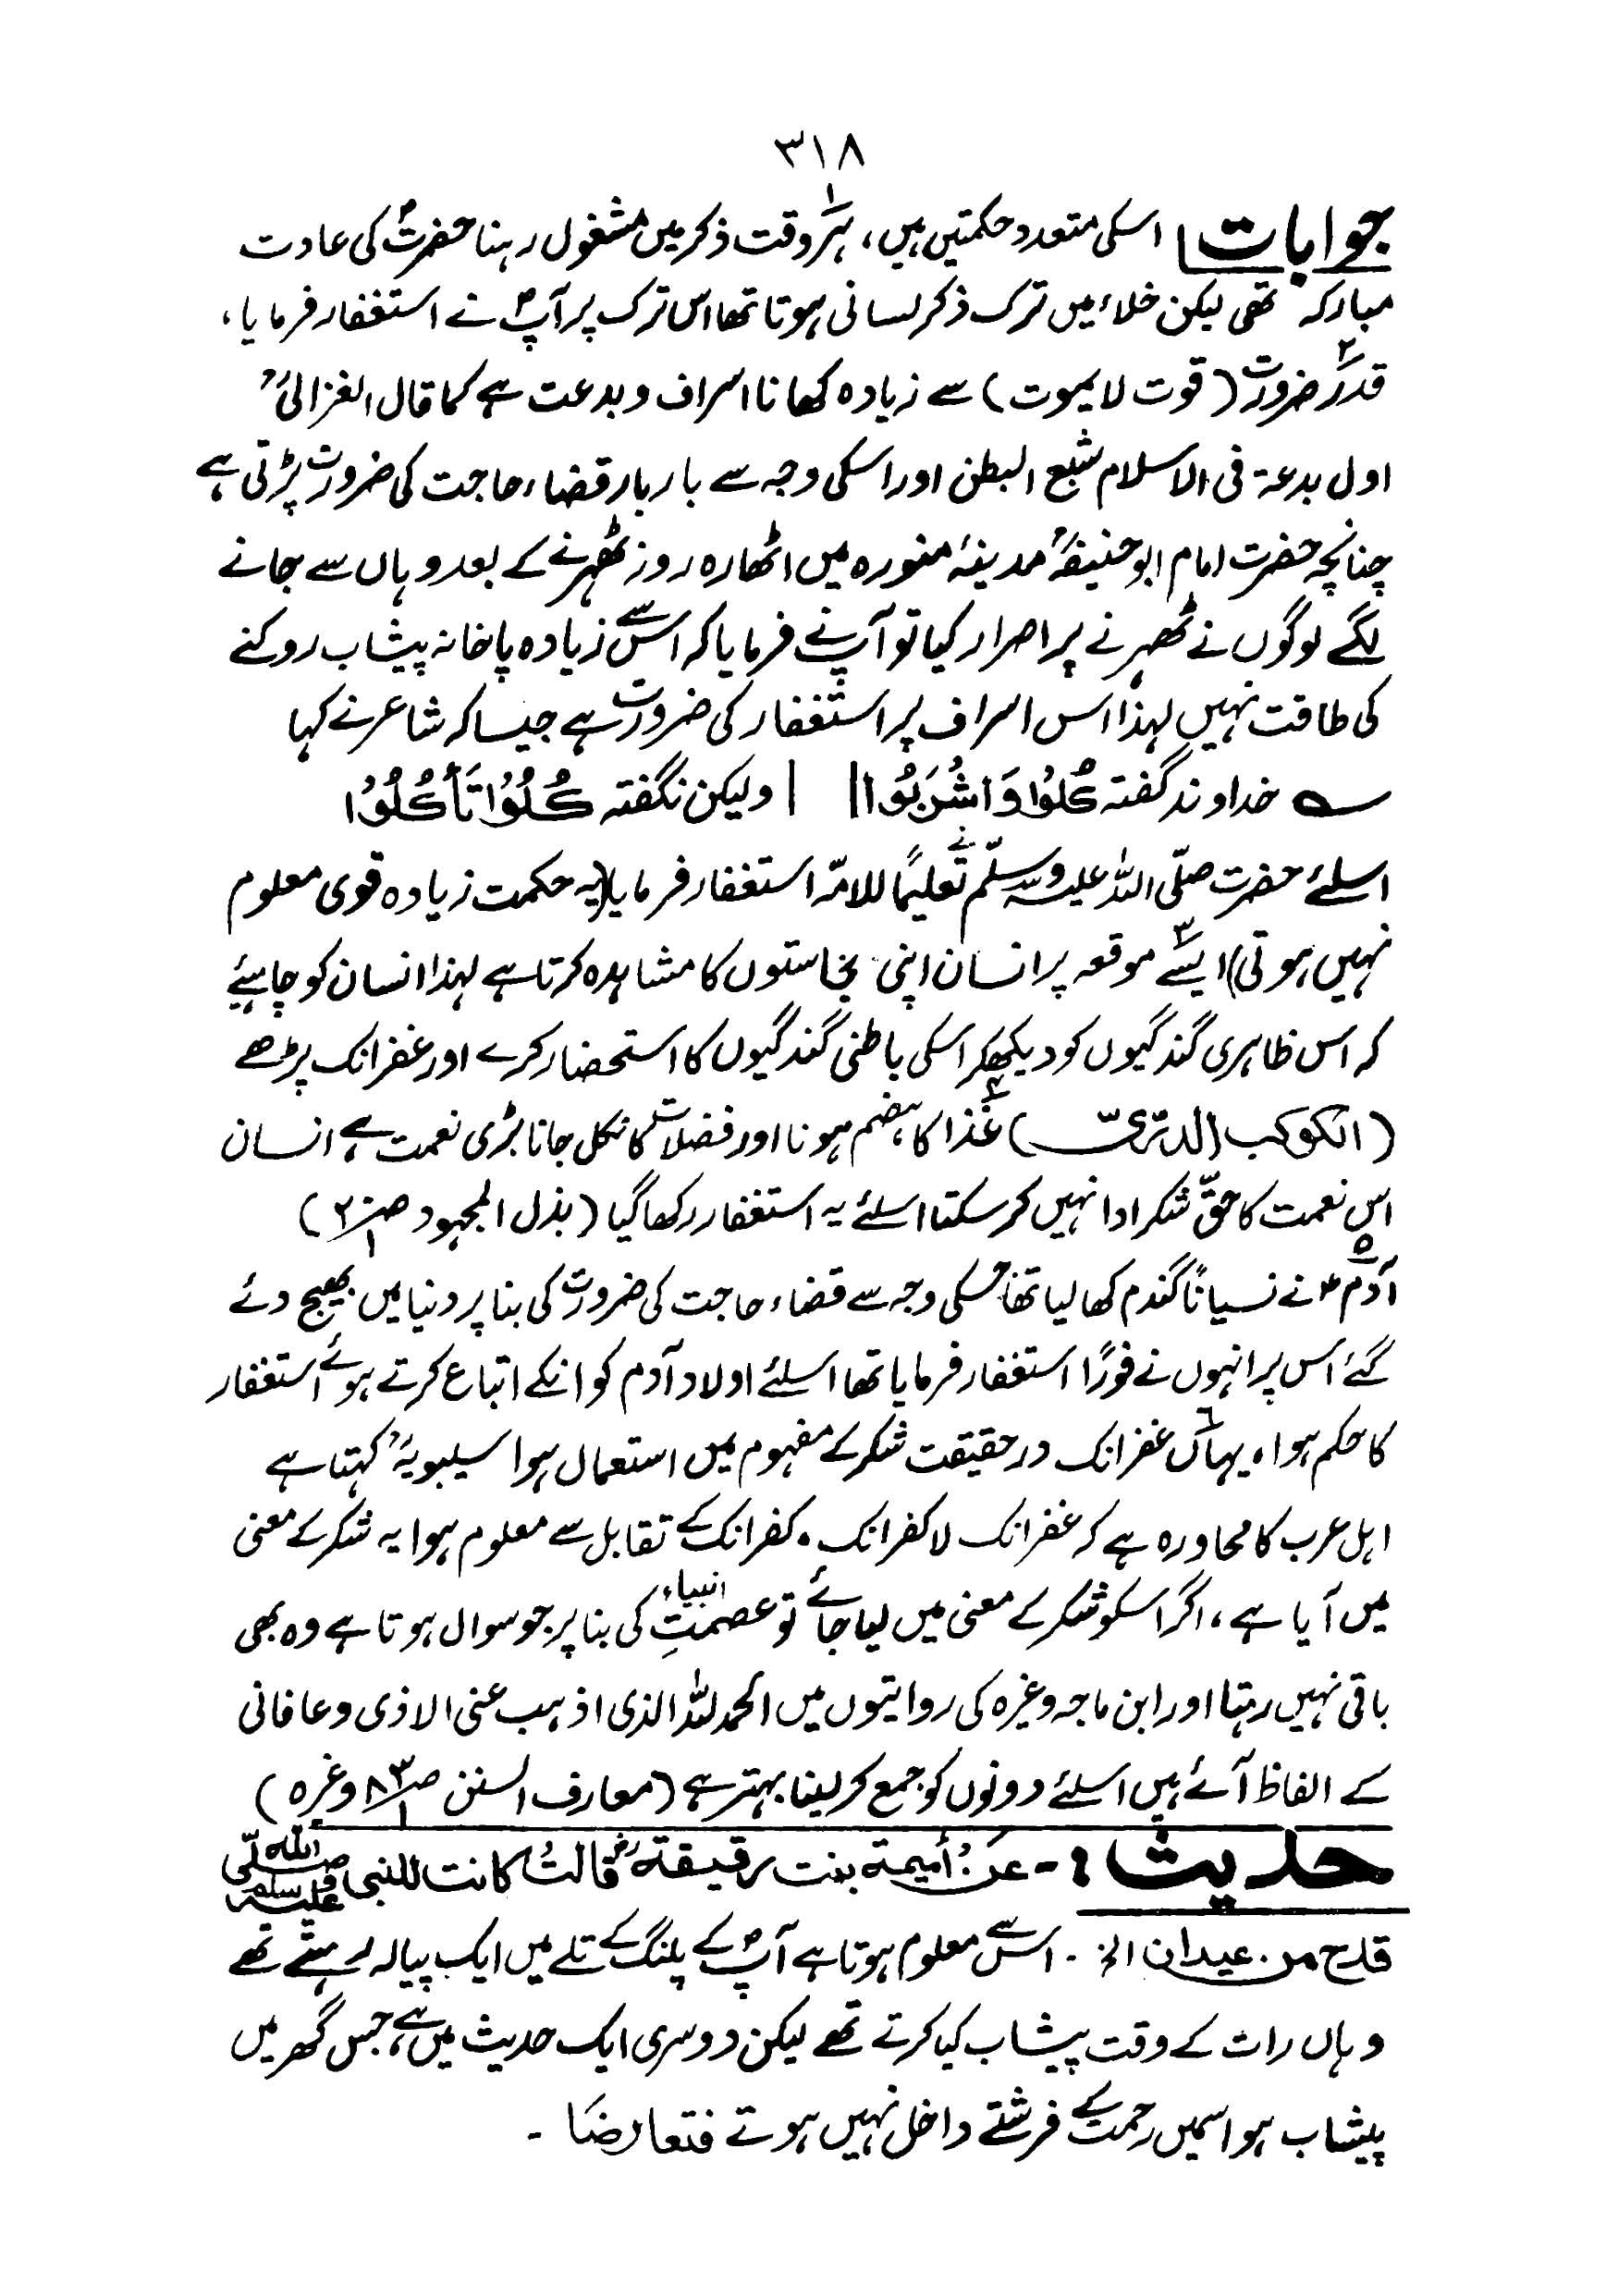 ۳۱۸
جوابات اسکی متعدد حکمتیں ہیں، ۱؎ ہر وقت ذکر میں مشغول رہنا حضرتؐ کی عادت
مبارکہ تھی لیکن خلاء میں ترک ذکر لسانی ہوتا تھا اس ترک پر آپؐ نے استغفار فرمایا،
۲؎ قدر ضرورت (قوت لا یموت) سے زیادہ کھانا اسراف و بدعت ہے کما قال الغزالیؒ
اول بدعۃ فی الاسلام شبع البطن اور اسکی وجہ سے بار بار قضاء حاجت کی ضرورت پڑتی ہے
چنانچہ حضرت امام ابو حنیفہؒ مدینۂ منورہ میں اٹھارہ روز ٹھہرنے کے بعد وہاں سے جانے
لگے لوگوں نے ٹھہرنے پر اصرار کیا تو آپ نے فرمایا کہ اس سے زیادہ پاخانہ پیشاب روکنے
کی طاقت نہیں لہذا اس اسراف پر استغفار کی ضرورت ہے جیسا کہ شاعر نے کہا
؎ خداوند گفتہ کُلُوْا وَاشْرَبُوْا || | ولیکن نگفتہ کُلُوْا تَأْکُلُوْا
اسلئے حضرت صلّی اللہ علیہ وسلّم نے تعلیمًا للامّۃ استغفار فرمایا (یہ حکمت زیادہ قوی معلوم
نہیں ہوتی) ۳؎ ایسے موقعہ پر انسان اپنی نجاستوں کا مشاہدہ کرتا ہے لہذا انسان کو چاہیئے
کہ اس ظاہری گندگیوں کو دیکھکر اسکی باطنی گندگیوں کا استحضار کرے اور غفرانک پڑھے
(الکوکب الدرّیّ) ۴؎ غذا کا ہضم ہونا اور فضلات کا نکل جانا بڑی نعمت ہے انسان
اس نعمت کا حقّ شکر ادا نہیں کر سکتا اسلئے یہ استغفار رکھا گیا (بذل المجہود ص۲۰/۱)
۵؎ آدمؑ نے نسیانًا گندم کھا لیا تھا جسکی وجہ سے قضاء حاجت کی ضرورت کی بنا پر دنیا میں بھیج دئے
گئے اس پر انہوں نے فورًا استغفار فرمایا تھا اسلئے اولاد آدم کو انکے اتباع کرتے ہوئے استغفار
کا حکم ہوا، ۶؎ یہاں غفرانک درحقیقت شکر کے مفہوم میں استعمال ہوا سیبویہؒ کہتا ہے
اہل عرب کا محاورہ ہے کہ غفرانک لا کفرانک، کفرانک کے تقابل سے معلوم ہوا یہ شکر کے معنی
میں آیا ہے، اگر اسکو شکر کے معنی میں لیا جائے تو عصمتِ انبیاء کی بنا پر جو سوال ہوتا ہے وہ بھی
باقی نہیں رہتا اور ابن ماجہ وغیرہ کی روایتوں میں الحمد للہ الذی اذہب عنی الاذی و عافانی
کے الفاظ آئے ہیں اسلئے دونوں کو جمع کر لینا بہتر ہے (معارف السنن ص۸۳/۱ وغیرہ)
حدیث :- عن أمیمۃ بنت رقیقۃؓ قالت کانت للنبی صلّی اللہ علیہ وسلم
قدح من عیدان الخ۔ اس سے معلوم ہوتا ہے آپؐ کے پلنگ کے تلے میں ایک پیالہ رہتے تھے
وہاں رات کے وقت پیشاب کیا کرتے تھے لیکن دوسری ایک حدیث میں ہے، جس گھر میں
پیشاب ہو اسمیں رحمت کے فرشتے داخل نہیں ہوتے فتعارضا۔